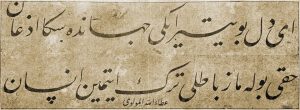 ای دل بو یتر ایکی جهانده سکا اذعان
حقی بوله مز باطلی ترک ایتمین انسان
عطاءالله المولوی